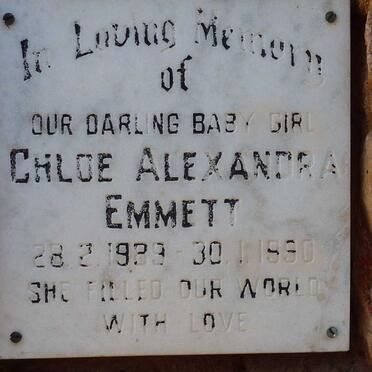 In Loving Memory
of
OUR DARLING BABY GIRL
CHLOE ALEXANDRA
EMMETT
28.2.1989 - 30.1.1990
SHE FILLED OUR WORLD
WITH LOVE